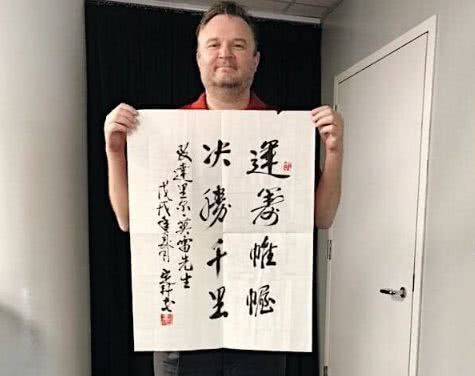 運籌帷幄
决勝千里
致達里尔·莫雷先生
戊戌年